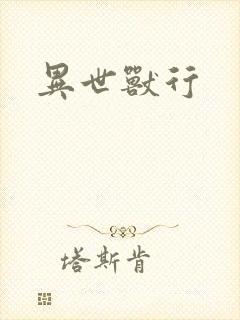 異世獸行
塔斯肯